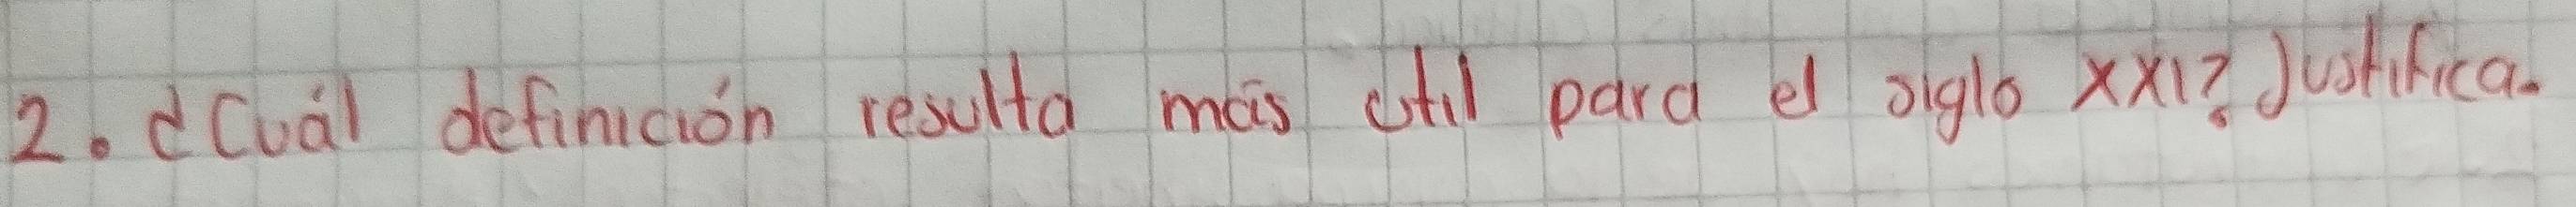 2. ¿Cuál definición resulta más útil para el siglo XXI? Justifica.